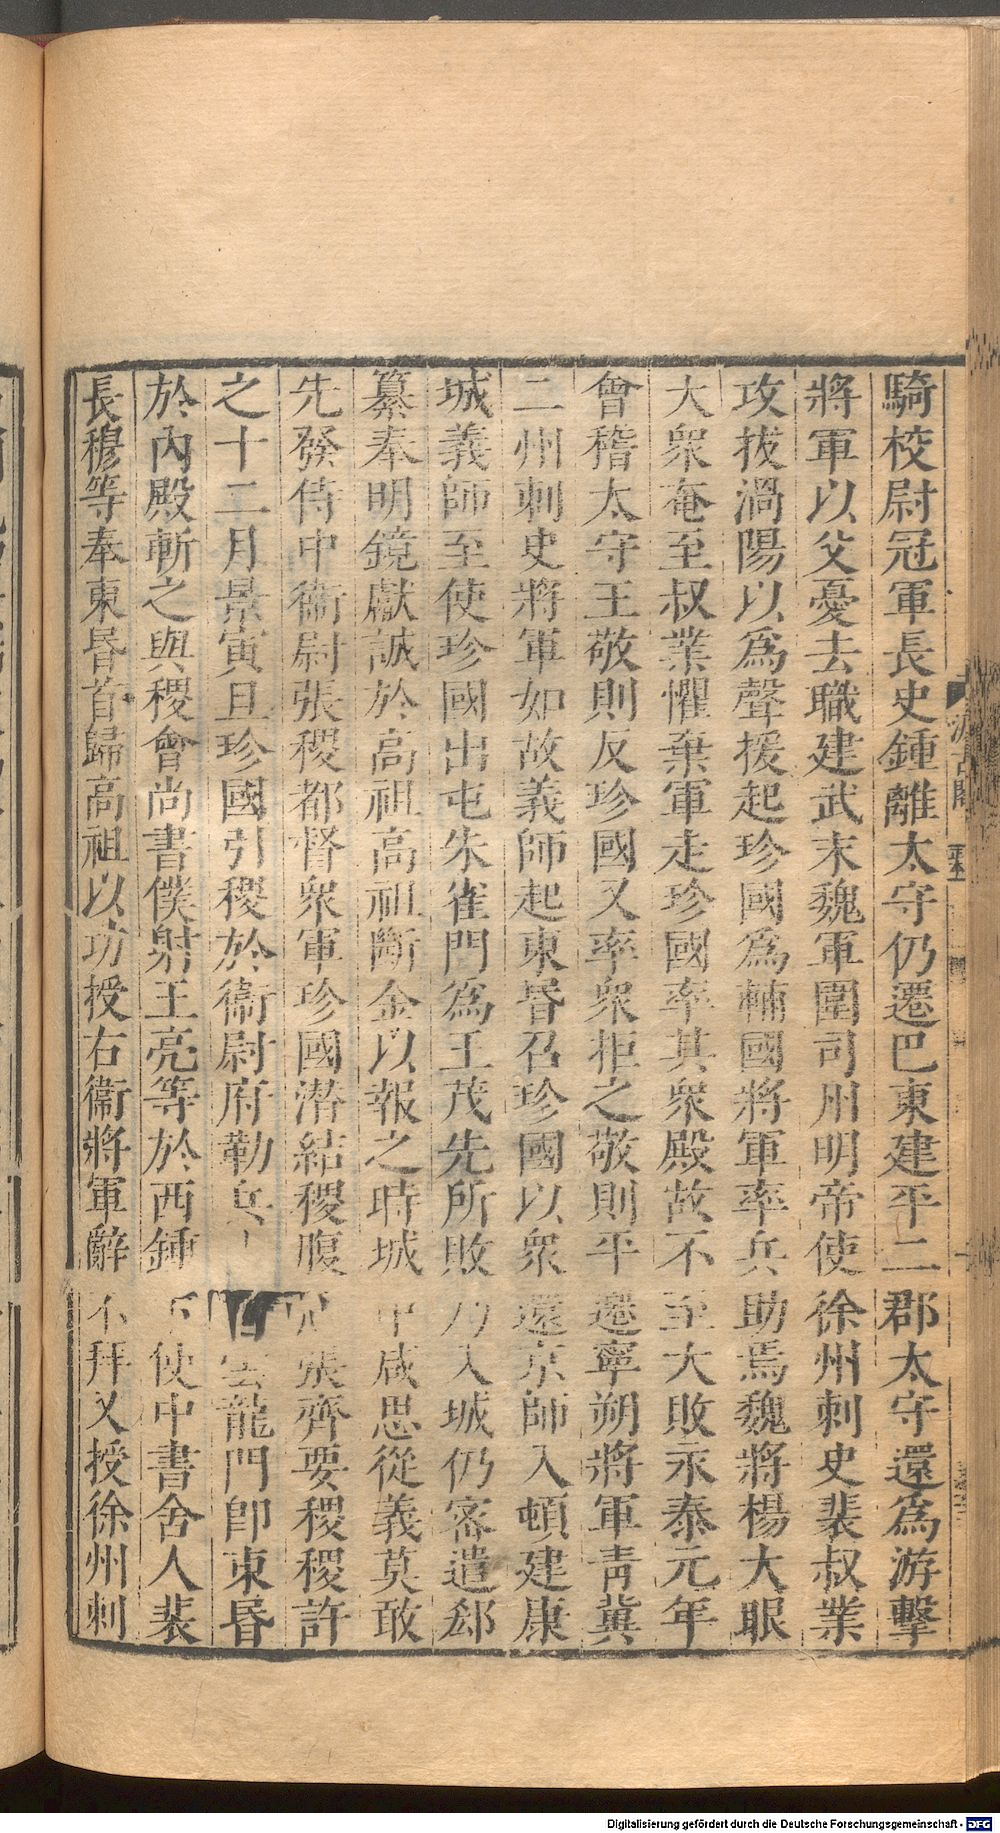 騎校尉冠軍長史鍾離太守仍遷巴東建平二郡太守還為游擊
將軍以父憂去職建武末魏軍圍司州明帝使徐州刺史裴叔業
攻拔渦陽以為聲援起珍國為輔國將軍率兵助焉魏將楊大眼
大衆奄至叔業懼棄軍走珍國率其衆殿故不至大敗永泰元年
會稽太守王敬則反珍國又率衆拒之敬則平遷寧朔將軍青冀
二州刺史將軍如故義師起東昬召珍國以衆還京師入頓建康
城義師至使珍國出屯朱雀門為王茂先所敗乃入城仍密遣郄
纂奉明鏡獻誠於高祖高祖斷金以報之時城中咸思從義莫敢
先發侍中衞尉張稷都督衆軍珍國潛結稷腹心張齊要稷稷許
之十二月景寅旦珍國引稷於衞尉府勒兵雲龍門即東昬
於內殿斬之與稷會尚書僕射王亮等於西鍾下使中書舍人裴
長穆等奉東昬首歸高祖以功授右衞將軍辭不拜又授徐州刺
汲古閣
Digitalisierung gefördert durch die Deutsche Forschungsgemeinschaft - DFG